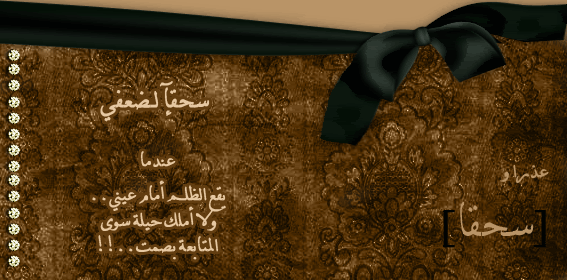 سحقاً لضعفي
عندما
يقع الظلم أمام عيني..
ولا أملك حيلة سوى
المتابعة بصمت..!!
عذراء
[سحقا]